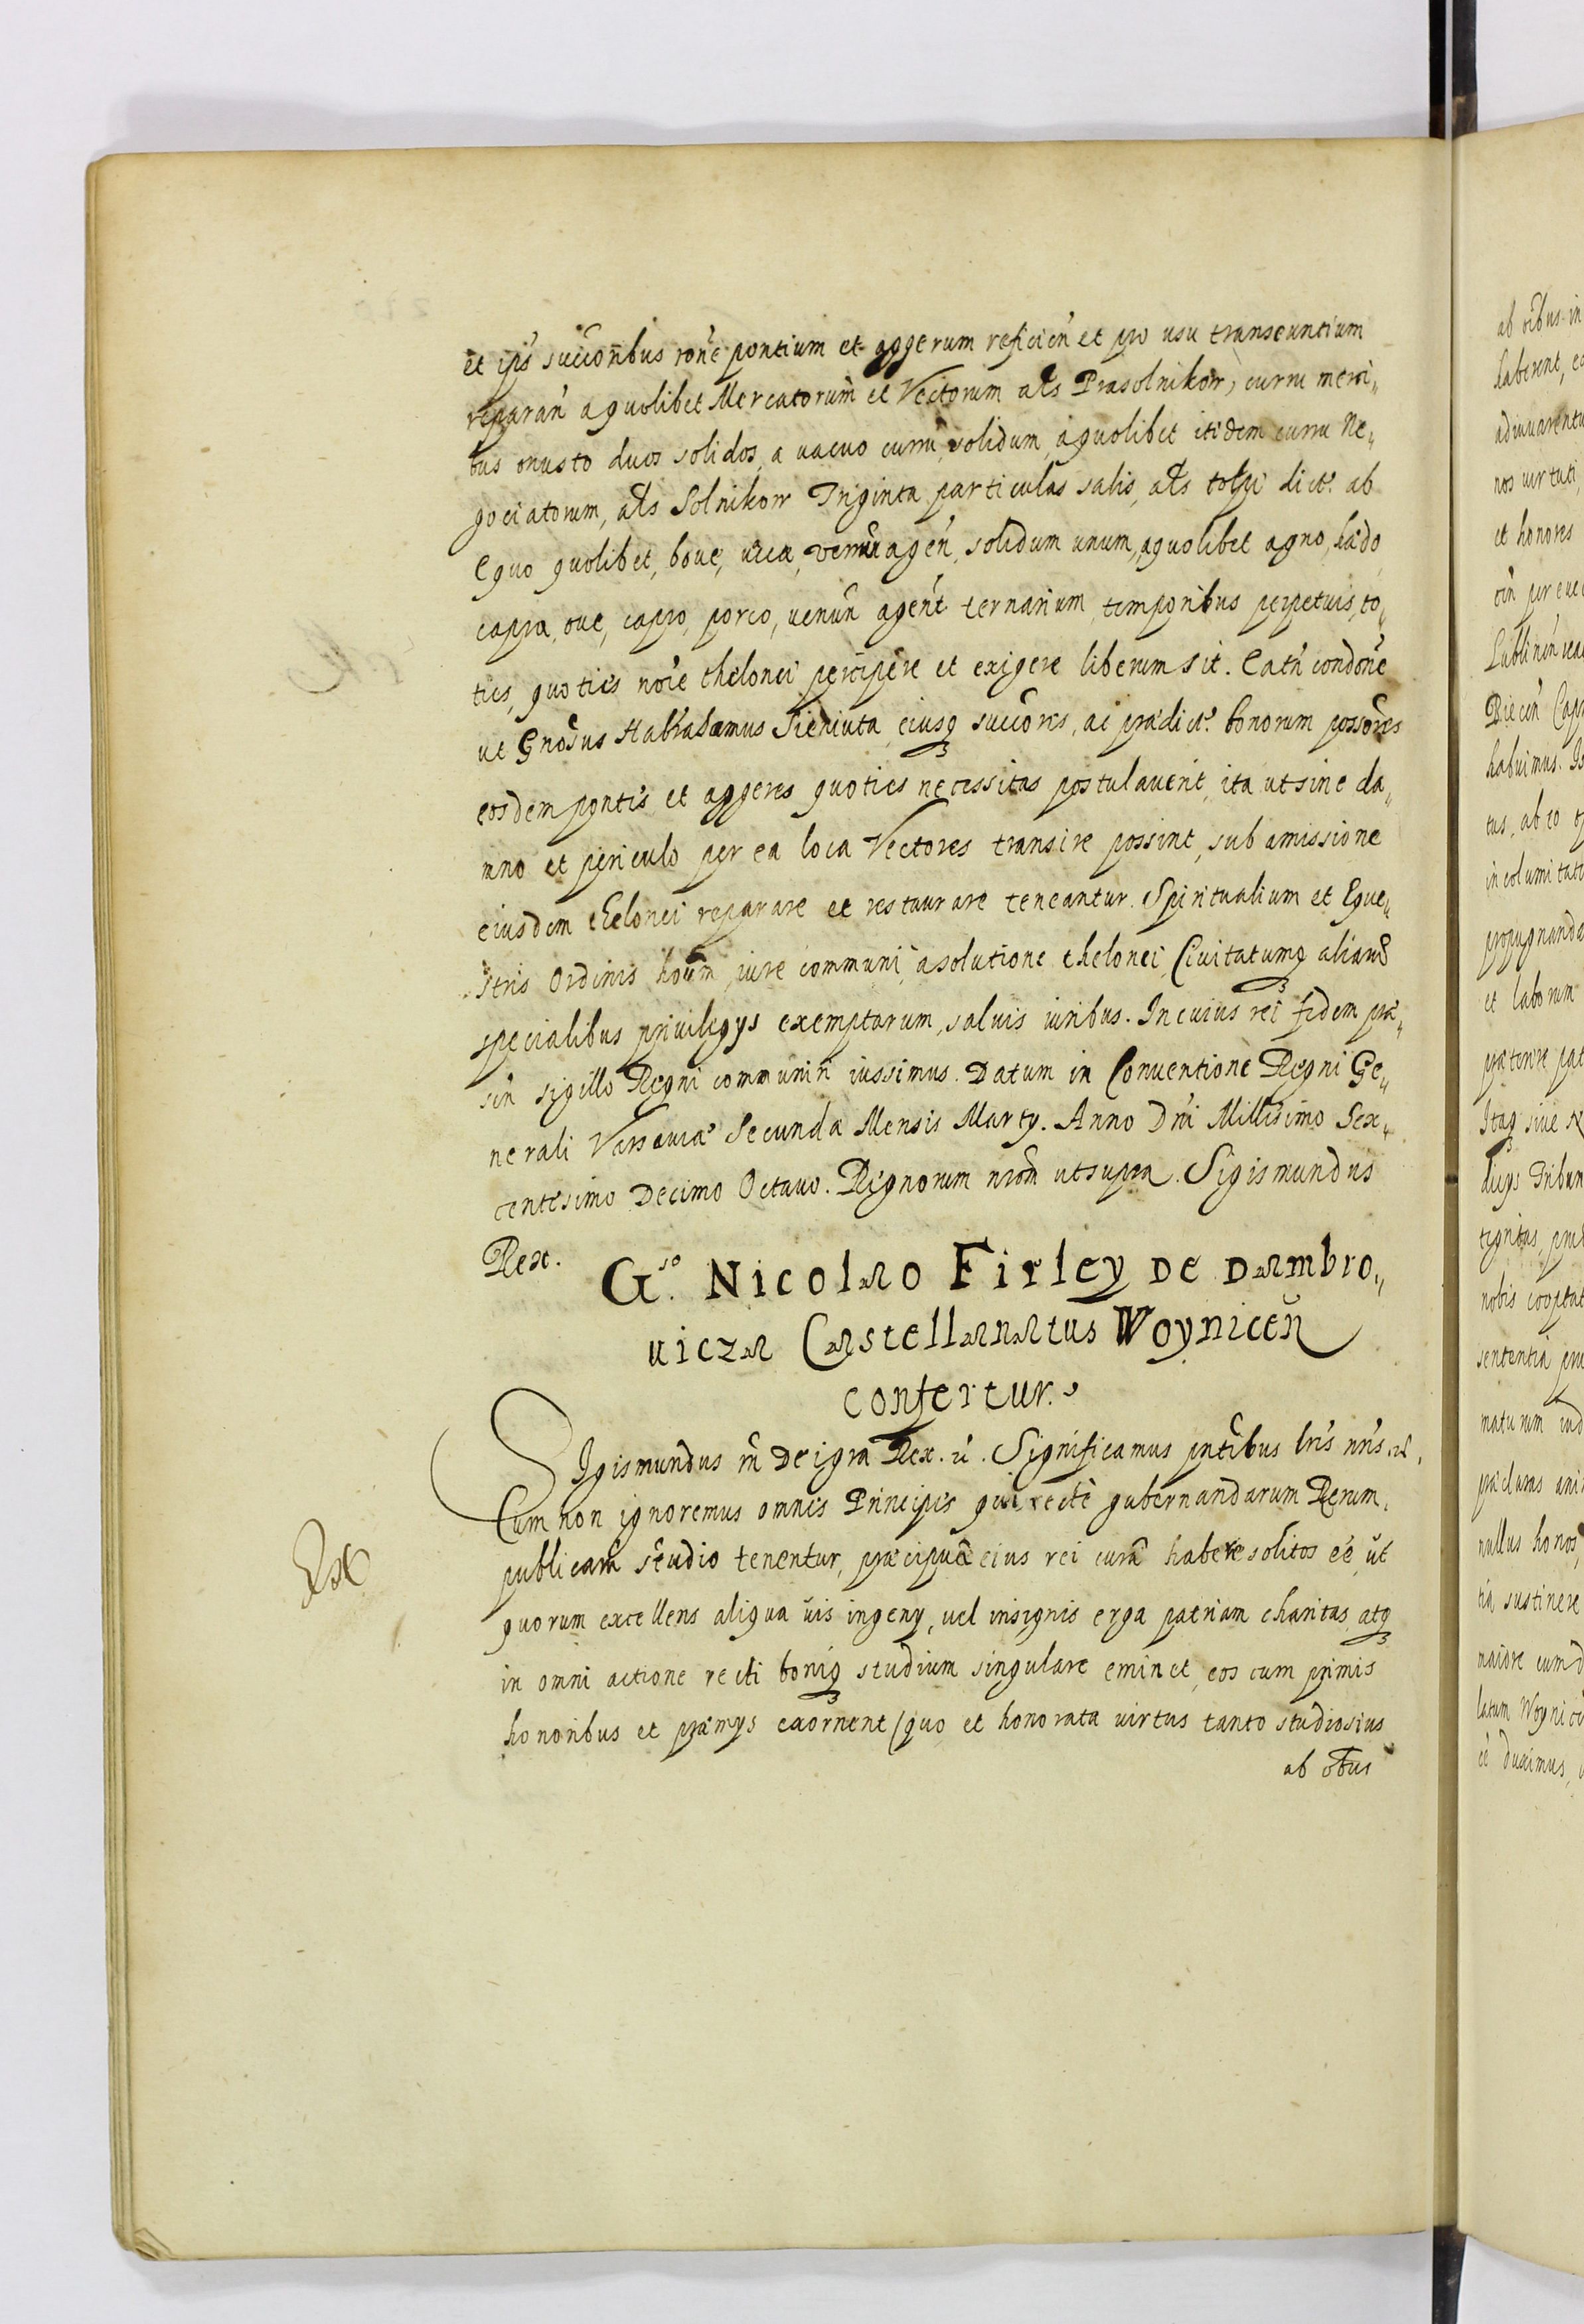 et ips succoribus rone pontium et aggerum reficien et pro usu transeuntium
reparan a quolibet Mercatorum et Vectorum als Prasolnikow, curru merci„
bus onusto duos solidos, a vacuo curru, solidum, a quolibet itidem curru Ne„
gociatorum, als Solnikow Triginta particulas salis, als tolpi dict. ab
Equo quolibet, boue, vacca, venum agen, solidum unum, a quolibet agno, hædo,
capra, oue, capro, porco, uenum agent ternarium, temporibus perpetuis, to„
ties, quoties noie thelonei percipere et exigere liberum sit. Eatn condone
ut Gnosus Habrahamus Sieniuta eiusq succores, ac prædict. bonorum possores
eosdem pontes et aggeres quoties necessitas postulauerit, ita ut sine da„
mno et periculo per ea loca Vectores transire possint, sub amissione
eiusdem thelonei reparare et restaurare teneantur. Spiritualium et Eque„
stris Ordinis houm, iure communi, a solutione thelonei Ciuitatumq aliarum
specialibus priuilegys exemptarum, saluis iuribus. In cuius rei fidem præ„
sen sigillo Regni communiri iussimus. Datum in Conuentione Regni Ge„
nerali Varsauiæ Secunda Mensis Marty. Anno Dni Millesimo Sex„
centesimo Decimo Octauo. Regnorum nrorum ut supra. Sigismundus
Rex.
G.so Nicolao Firley de Dambro„
uicza Castellanatus Woynicen
confertur.
Sigismundus III Dei gra Rex. etc. Significamus pntibus lris nris etc.
Cum non ignoremus omnes Principes qui recte gubernandarum Rerum„
publicarum studio tenentur, præcipuã eius rei curã habere solitos ee, ut
quorum excellens aliqua uis ingeny, uel insignis erga patriam charitas, atq
in omni actione recti boniq studium singulare eminet, eos cum primis
honoribus et præmys exornent (quo et honorata uirtus tanto studiosius
ab oibus